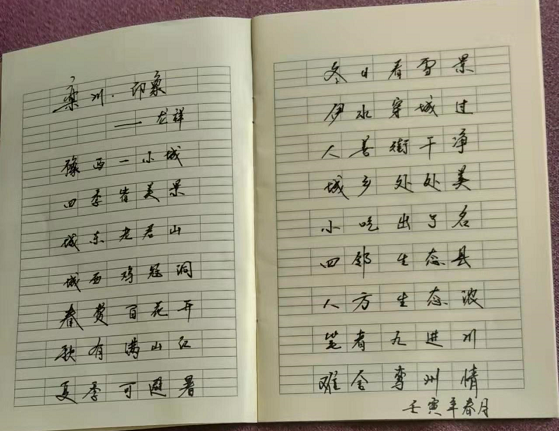 栾川·印象
——龙祥
豫西一小城
四季皆美景
城东老君山
城西鸡冠洞
春赏百花开
秋有满山红
夏季可避暑
冬日看雪景
伊水穿城过
人善街干净
城乡处处美
小吃出了名
四邻生态县
八方生态浓
笔者几进川
难舍栾州情
壬寅年春月